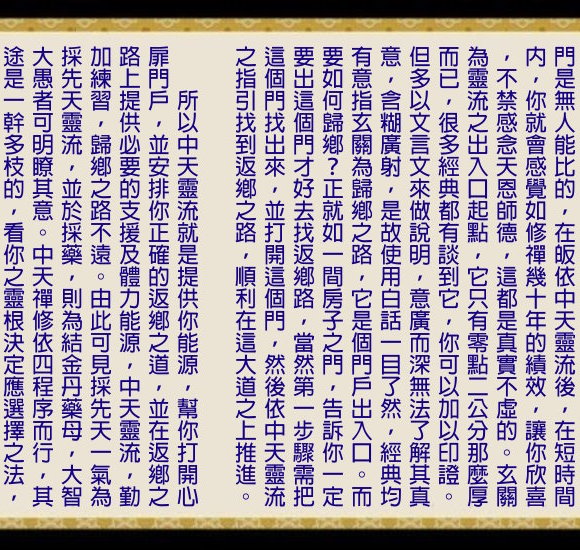 門是無人能比的，在皈依中天靈流後，在短時間
内，你就會感覺如修禪幾十年的績效，讓你欣喜
，不禁感念天恩師德，這都是真實不虛的。玄關
為靈流之出入口起點，它只有零點二公分那麼厚
而已，很多經典都有談到它，你可以加以印證。
但多以文言文來做說明，意廣而深無法了解其真
意，含糊廣射，是故使用白話一目了然，經典均
有意指玄關為歸鄉之路，它是個門戶出入口。而
要如何歸鄉？正就如一間房子之門，告訴你一定
要出這個門才好去找返鄉路，當然第一步驟需把
這個門找出來，並打開這個門，然後依中天靈流
之指引找到返鄉之路，順利在這大道之上推進。
所以中天靈流就是提供你能源，幫你打開心
扉門戶，並安排你正確的返鄉之道，並在返鄉之
路上提供必要的支援及體力能源，中天靈流，勤
加練習，歸鄉之路不遠。由此可見採先天一氣為
採先天靈流，並於採藥，則為結金丹藥母，大智
大愚者可明瞭其意。中天禪修依四程序而行，其
途是一幹多枝的，看你之靈根決定應選擇之法，